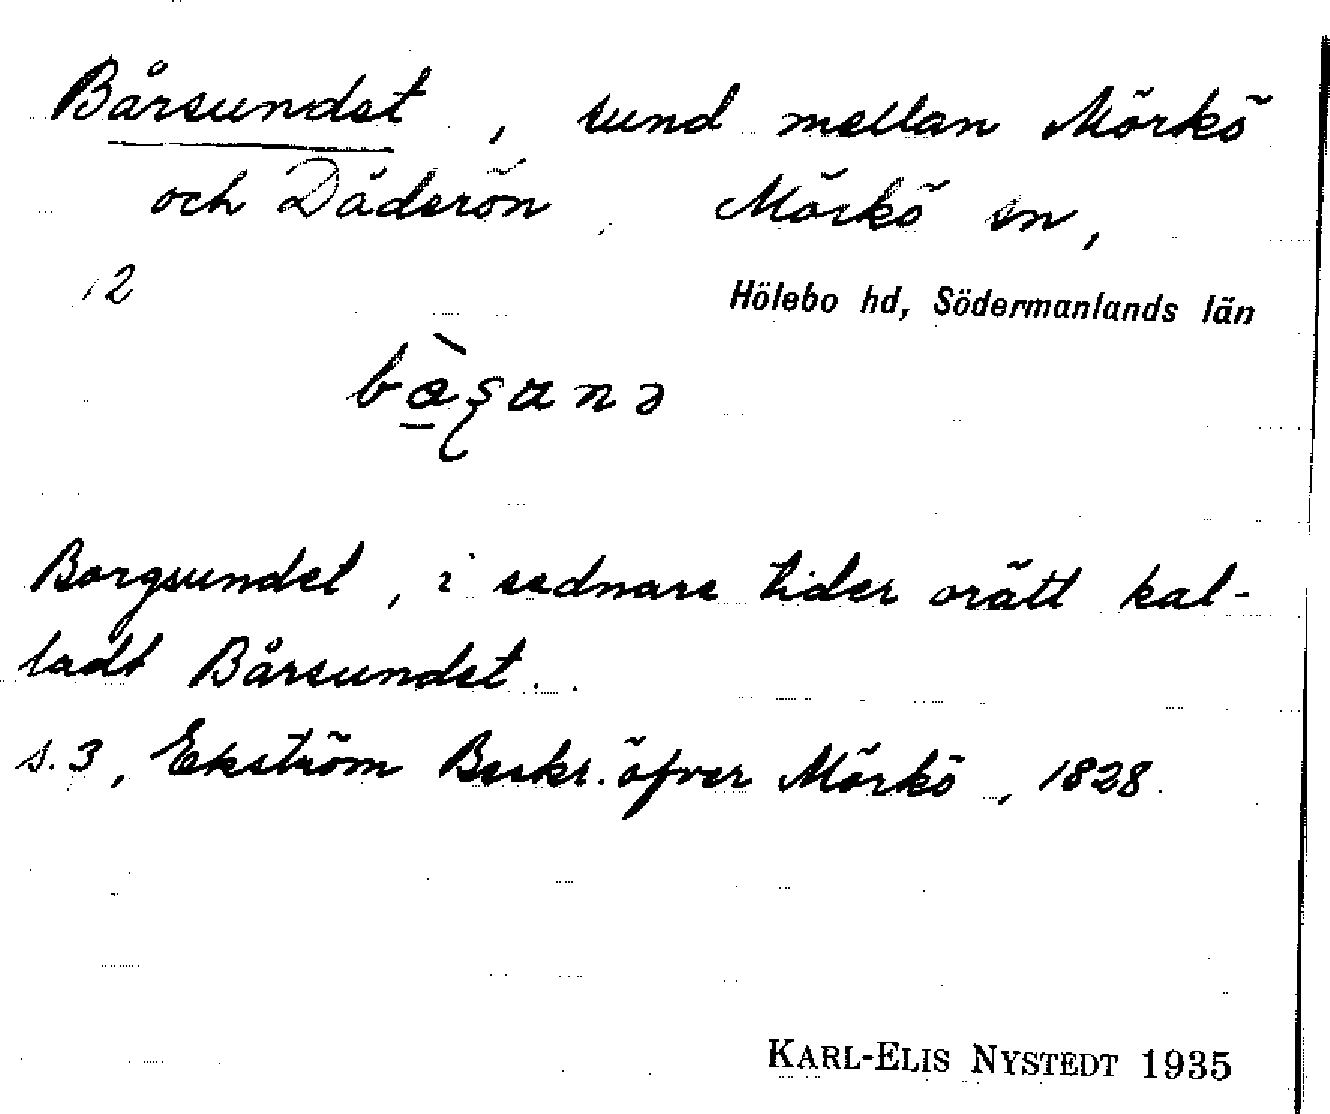 Bårsundet, sund mellan Mörkö
och Däderön. Mörkö sn,
12
Hölebo hd, Södermanlands län
Borgsundet, i sednare tider orätt kal-
ladt Bårsundet.
s. 3, Ekström Beskr. öfver Mörkö, 1828.
KARL-ELIS NYSTEDT 1935